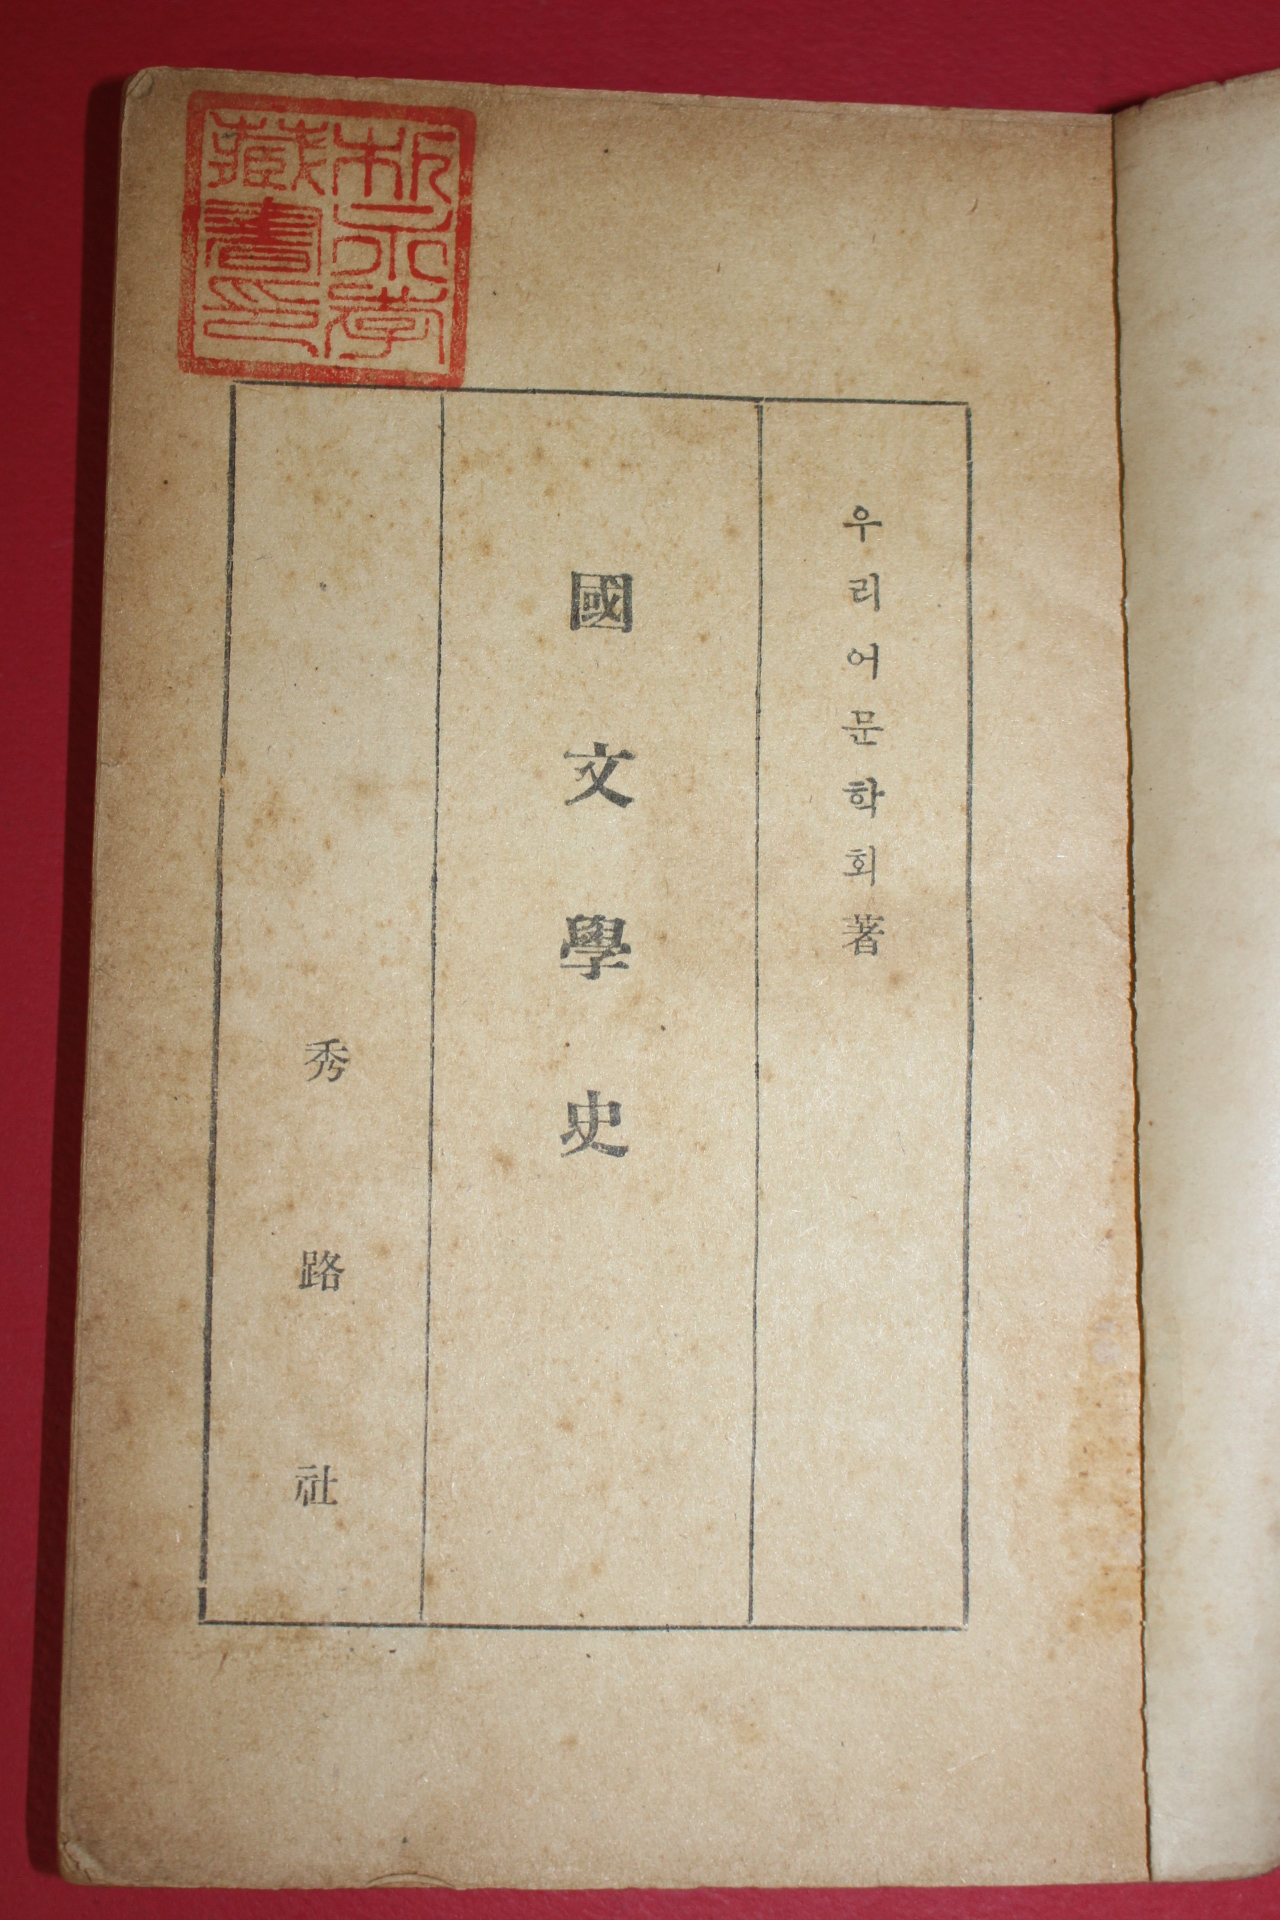 우리어문학회著
國文學史
秀路社
藏書印